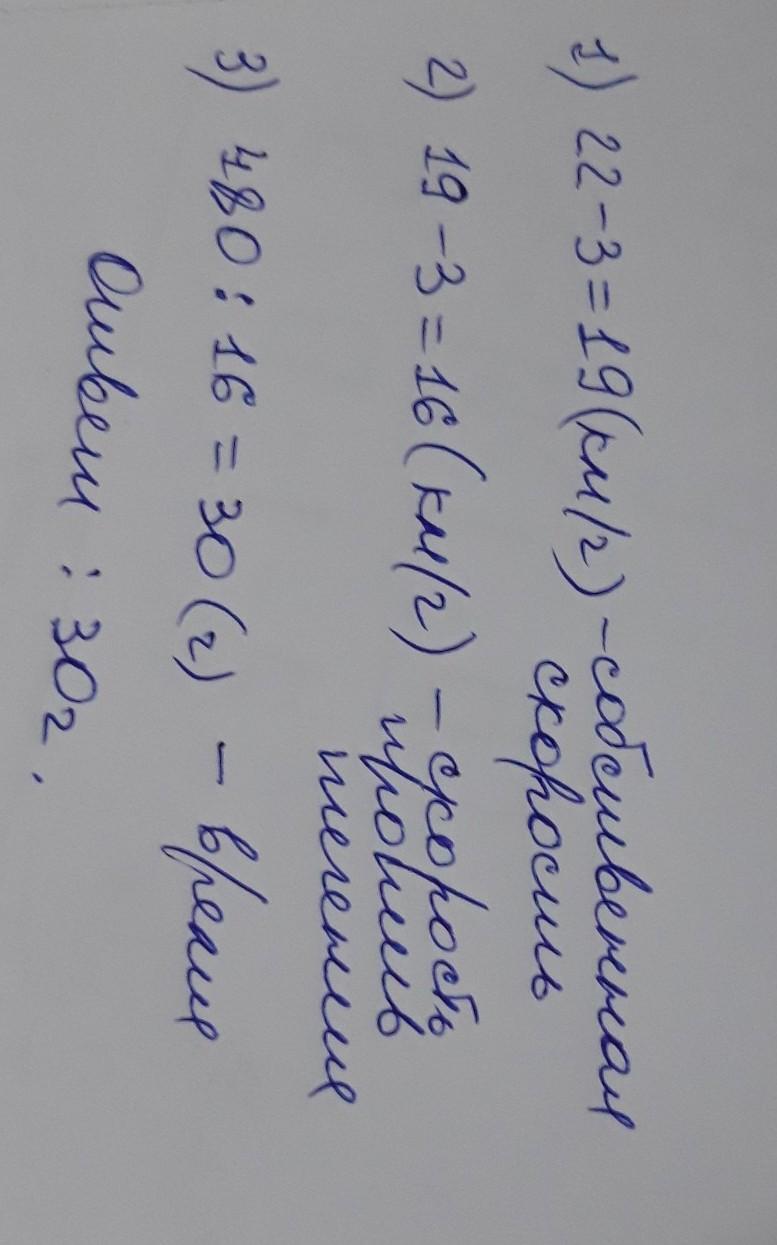 1) 22-3=19(км/ч) - собственная
скорость
2) 19-3=16(км/ч) - скорость
против
течения
3) 480:16=30(ч) - время
Ответ: 30ч.